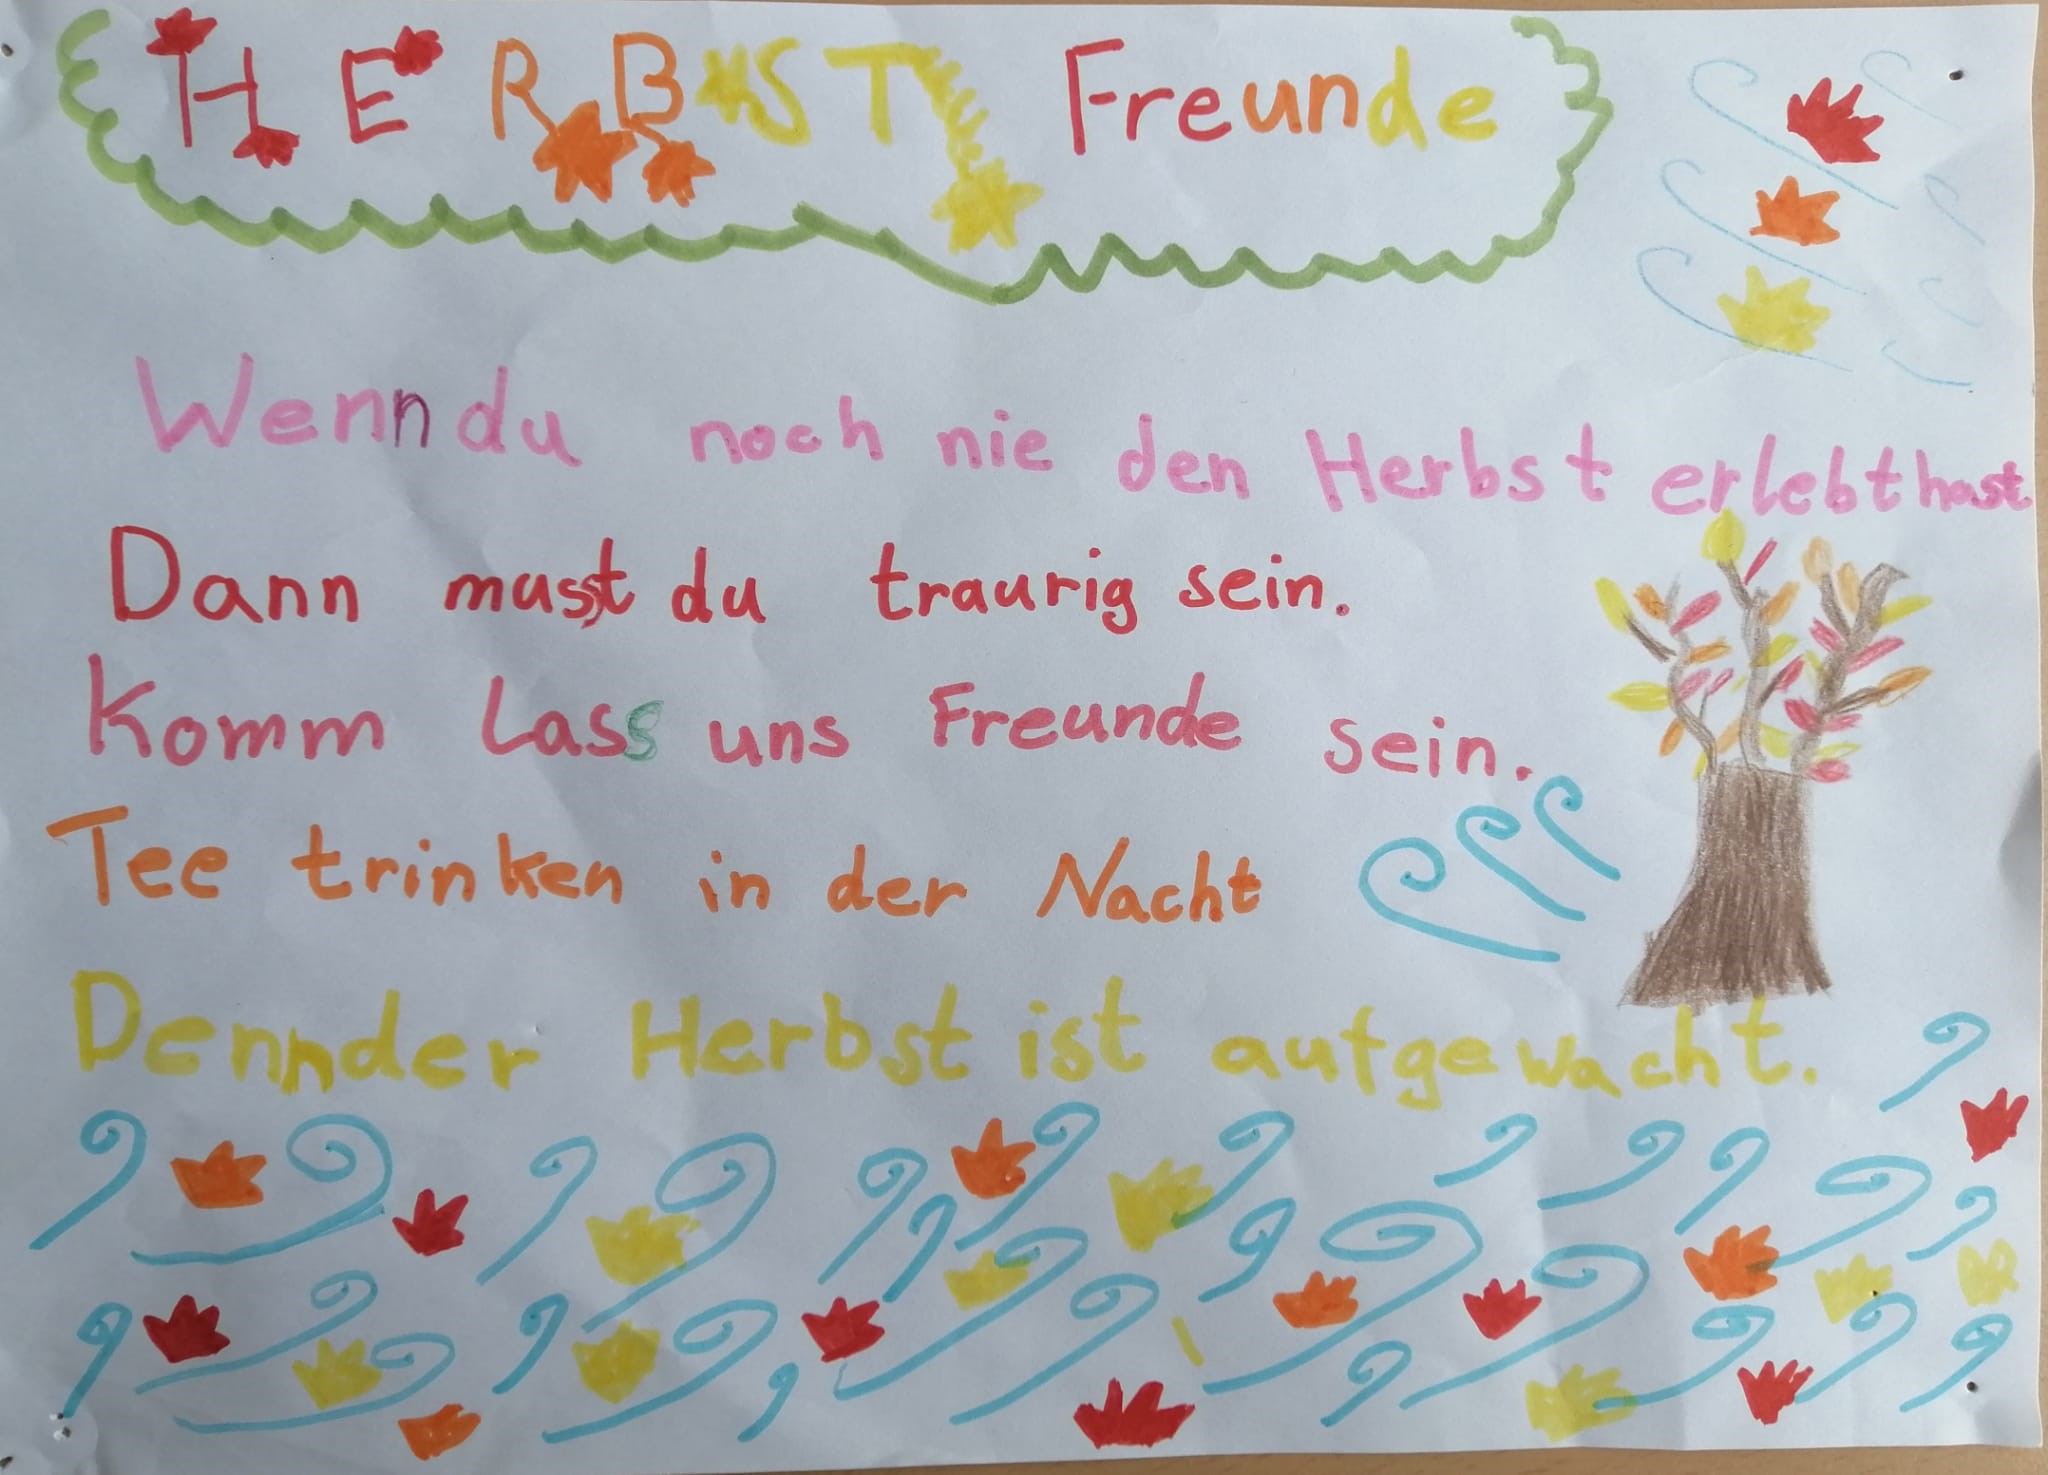 HERBST Freunde
Wenn du noch nie den Herbst erlebt hast.
Dann musst du traurig sein.
Komm lass uns Freunde sein.
Tee trinken in der Nacht
Denn der Herbst ist aufgewacht.